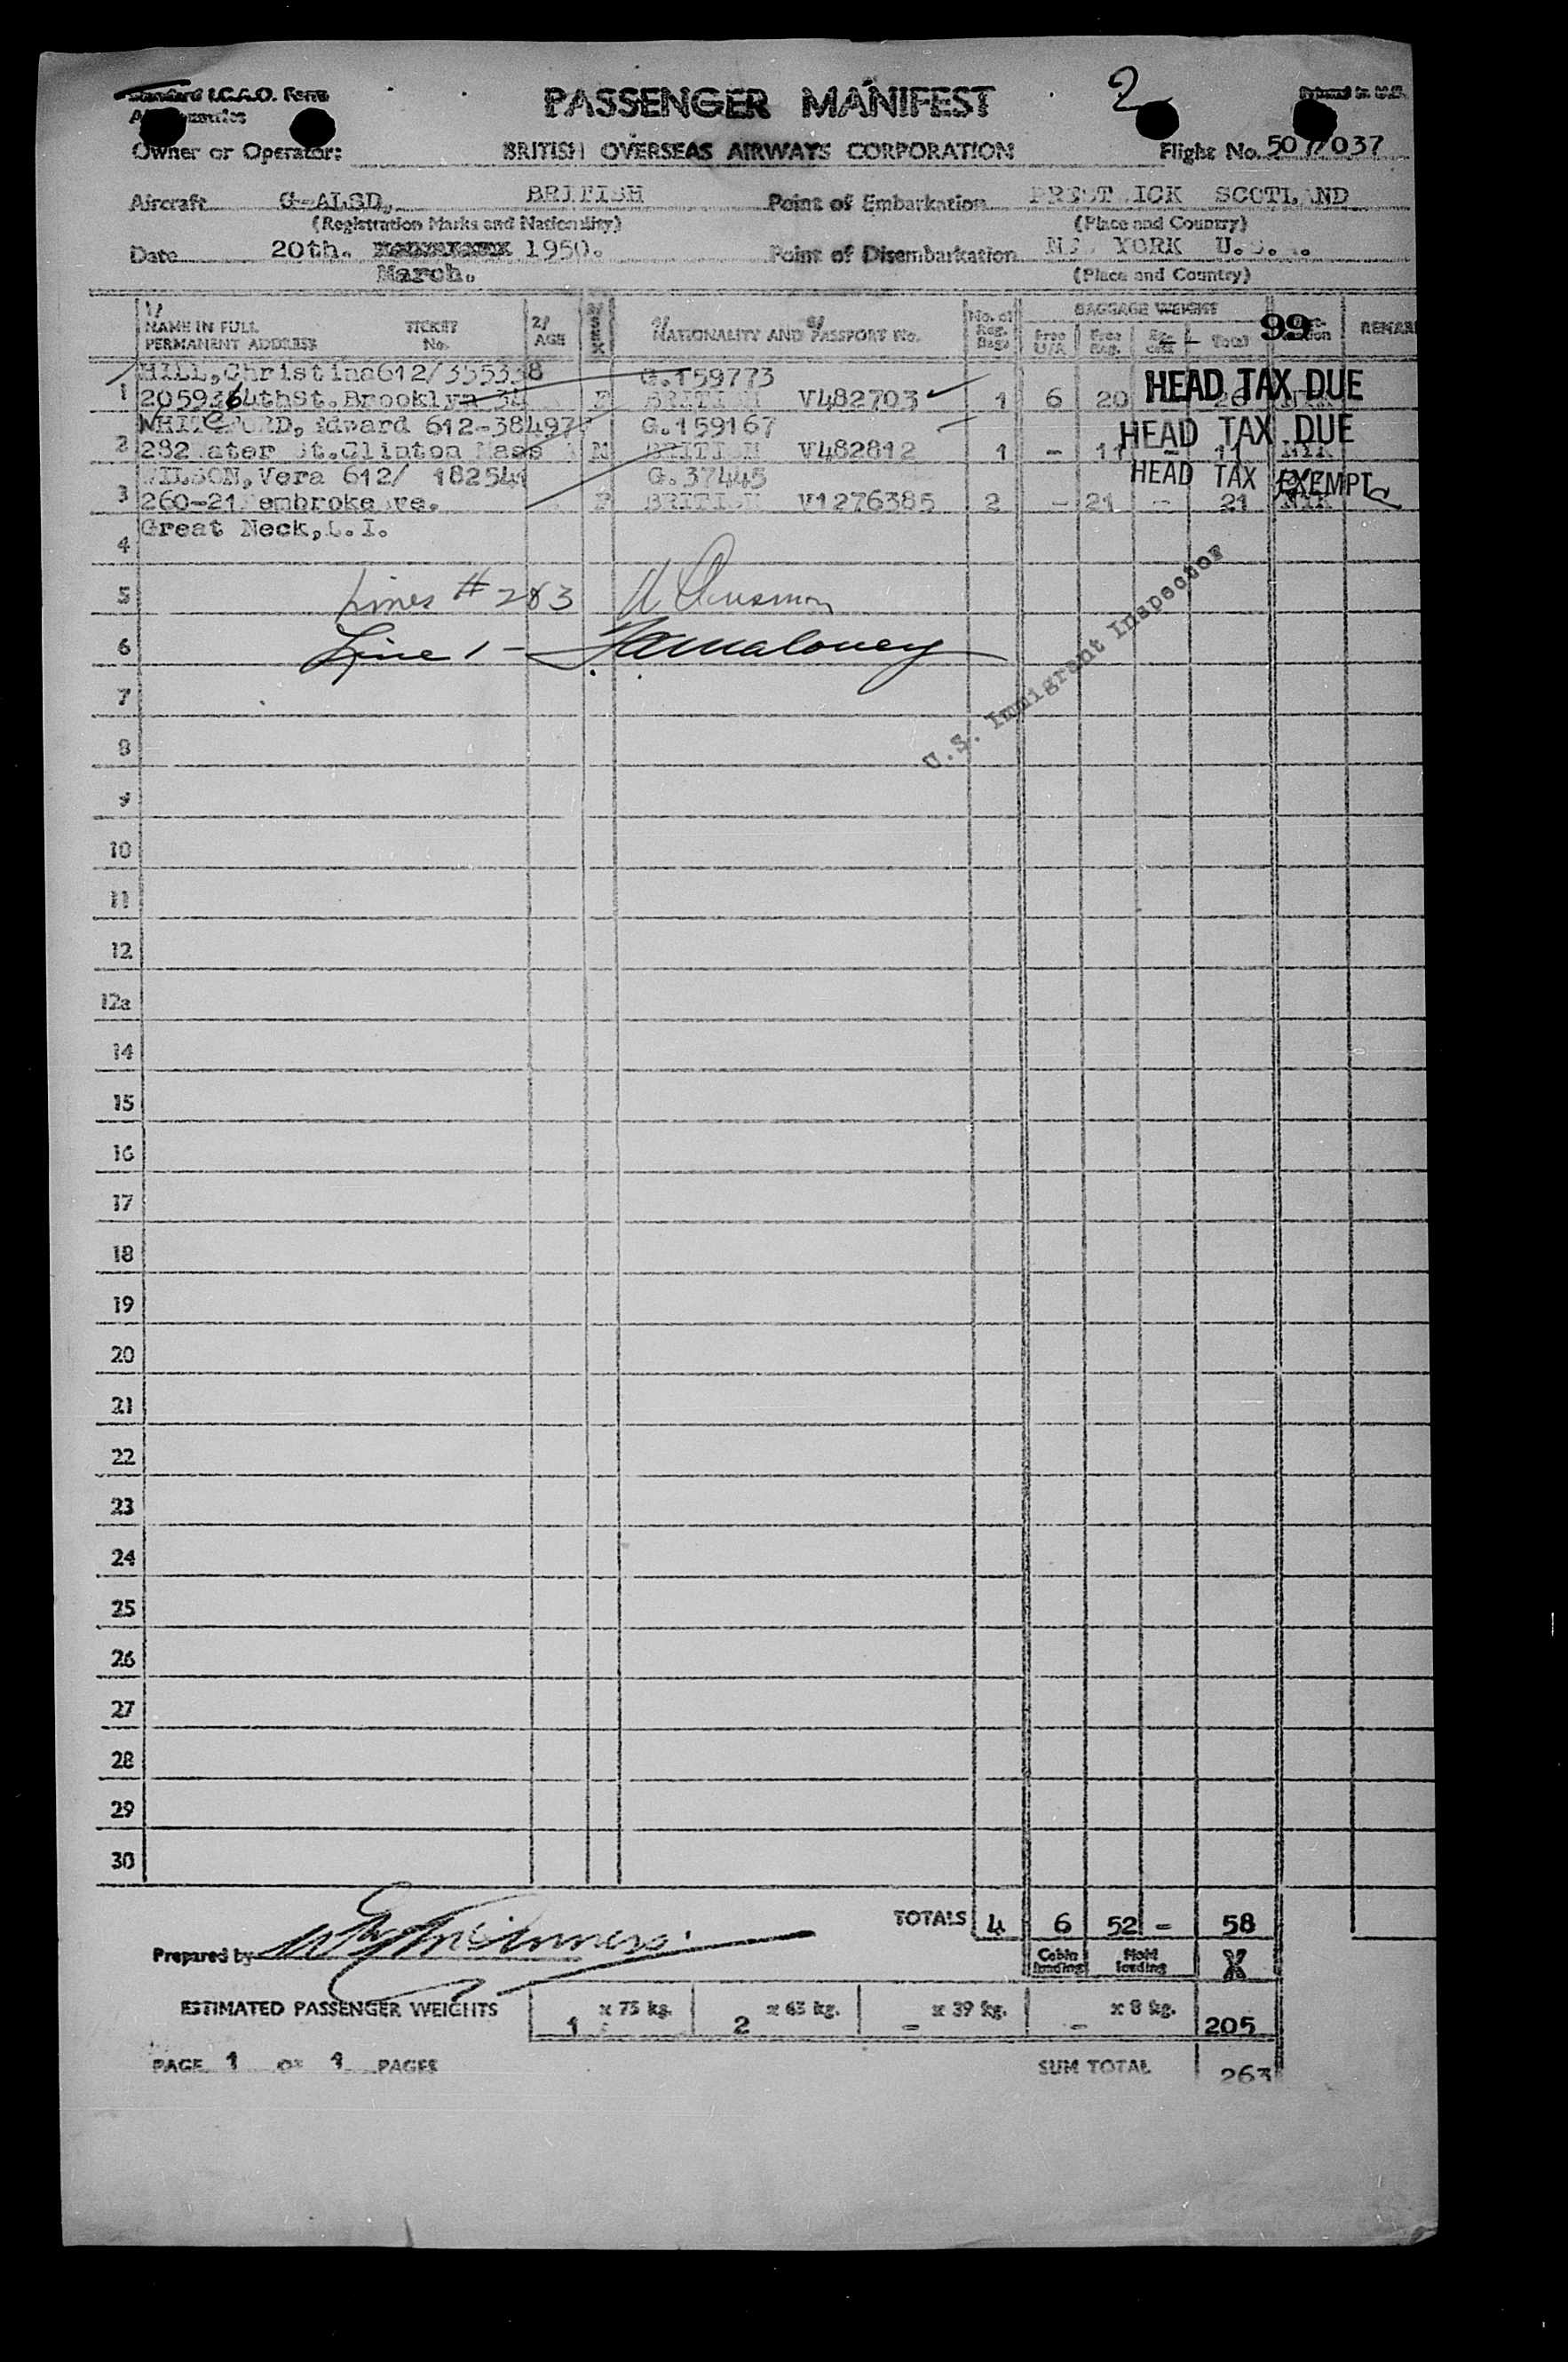 Standard I.C.A.O. Form
PASSENGER MANIFEST
2
Owner or Operator: BRITISH OVERSEAS AIRWAYS CORPORATION Flight No. 507/037
Aircraft G-ALSD, BRITISH Point of Embarkation PRESTWICK SCOTLAND
(Registration Marks and Nationality) (Place and Country)
Date 20th. 1950. Point of Disembarkation NEW YORK U.S.A.
March. (Place and Country)
1/ NAME IN FULL PERMANENT ADDRESS TICKET No. 2/ AGE 3/ SEX NATIONALITY AND PASSPORT No. No. of Reg. Bags BAGGAGE WEIGHT Free U/A Free Reg. Total 99 REMAR
HILL, Christina 612/355338 G.159773 HEAD TAX DUE
1 2059 64th St. Brooklyn 34 F BRITISH V482703 1 6 20 26 NYK
Edward 612-38497 G.159167 HEAD TAX DUE
2 282 Water St. Clinton Mass M BRITISH V482812 1 - 11 - 11 NYK
WILSON, Vera 612/ 182541 G.37445 HEAD TAX EXEMPT
3 260-21 Pembroke Ave. F BRITISH V1276385 2 - 21 - 21 NYK
Great Neck, L.I.
4
5 Lines # 2&3
6 Line 1 - Maloney
U.S. Immigrant Inspector
7
8
9
10
11
12
12a
14
15
16
17
18
19
20
21
22
23
24
25
26
27
28
29
30
TOTALS 4 6 52 - 58
Prepared by Cabin loading Hold loading X
ESTIMATED PASSENGER WEIGHTS 1 x 75 kg. 2 x 65 kg. - x 39 kg. - x 8 kg. 205
PAGE 1 OF 1 PAGES SUM TOTAL 263